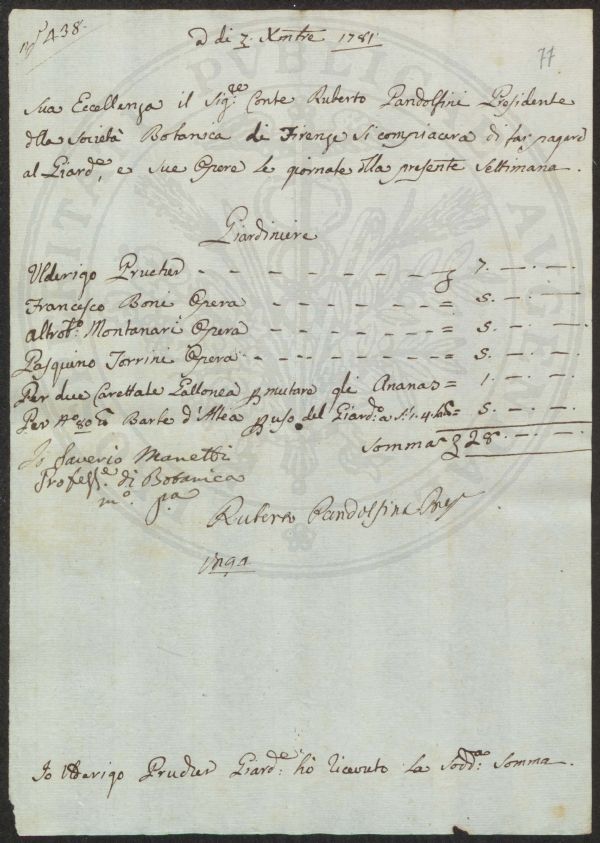 N.° 438.
A di 7. Xmbre 1781
77
Sua Eccellenza il Sig:re Conte Ruberto Pandolfini Presidente
dlla Società Botanica di Firenze si compiacerà di far pagare
al Giard:e, e sue Opere le giornate dlla presente Settimana.
Giardiniere
Ulderigo Prucker - - - - - - - - - 7. —. —
Francesco Boni Opera - - - - - - = 5. —. —
Altrob:o Montanari Opera - - - - - = 5. —. —
Pasquino Torrini Opera - - - - - - = 5. —. —
Per due Carettate Vallonea p mutare gli Ananas = 1. —. —
Per N:o 80 Barbe d'Altea p uso del Giard:o a = 5. —. —
Somma 28. —. —
Io Saverio Manetti
Profess:e di Botanica
m:o p:a
Ruberto Pandolfini Pres
Io Ulderigo Prucker Giard:e hò ricevuto la Sodd:a Somma.
PVBLICAE